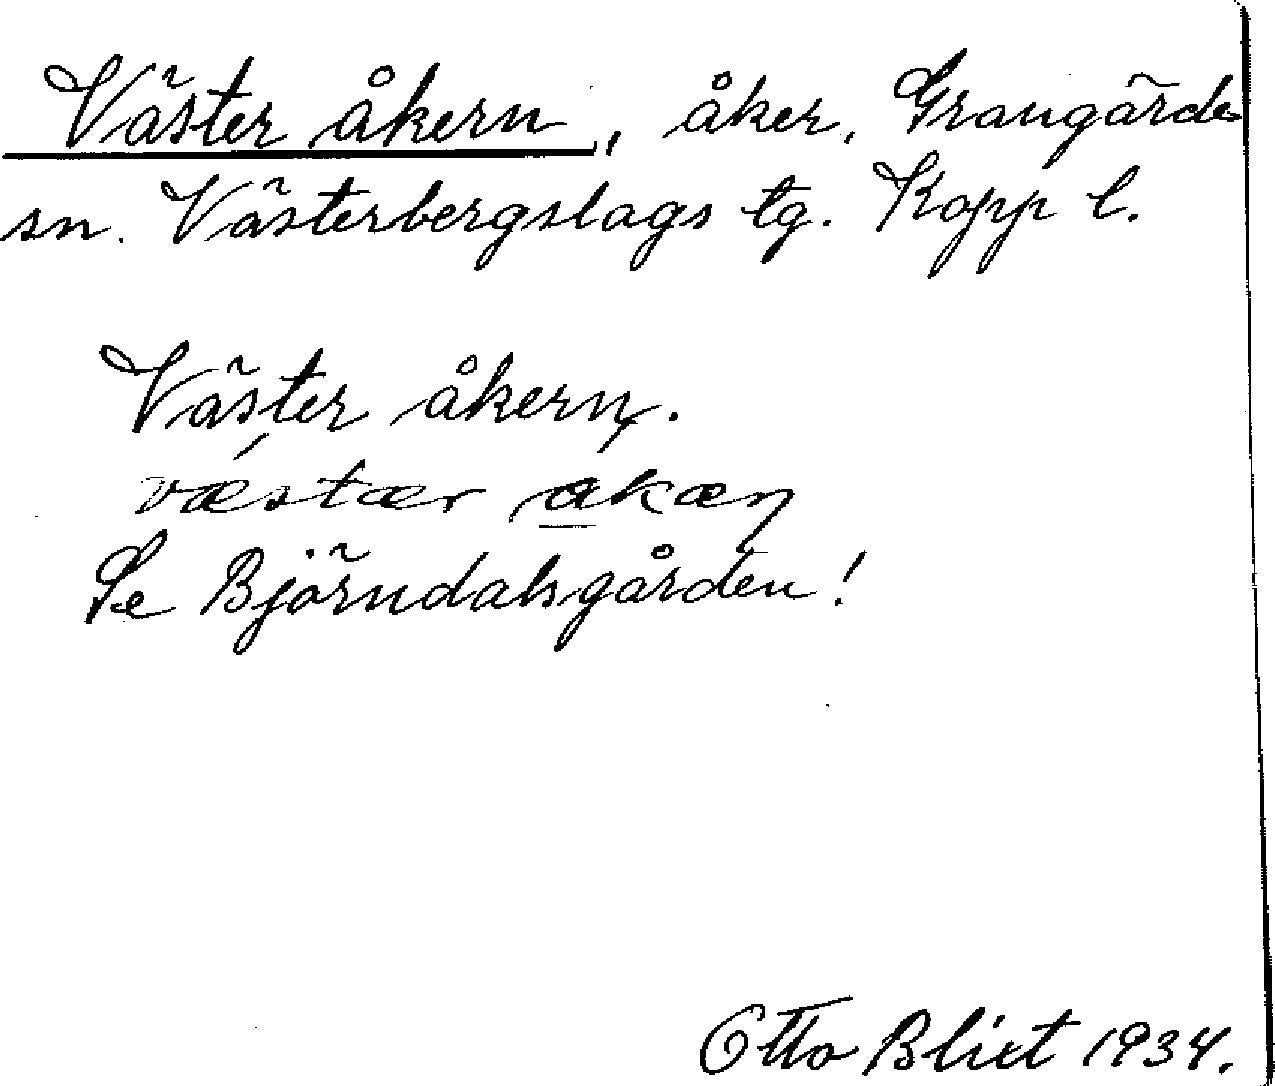 Väster åkern, åker, Grangärde
sn. Västerbergslags tg. Kopp l.
Väster åkern.
væstær akæn
Se Björndalsgården!
Otto Blixt 1934.